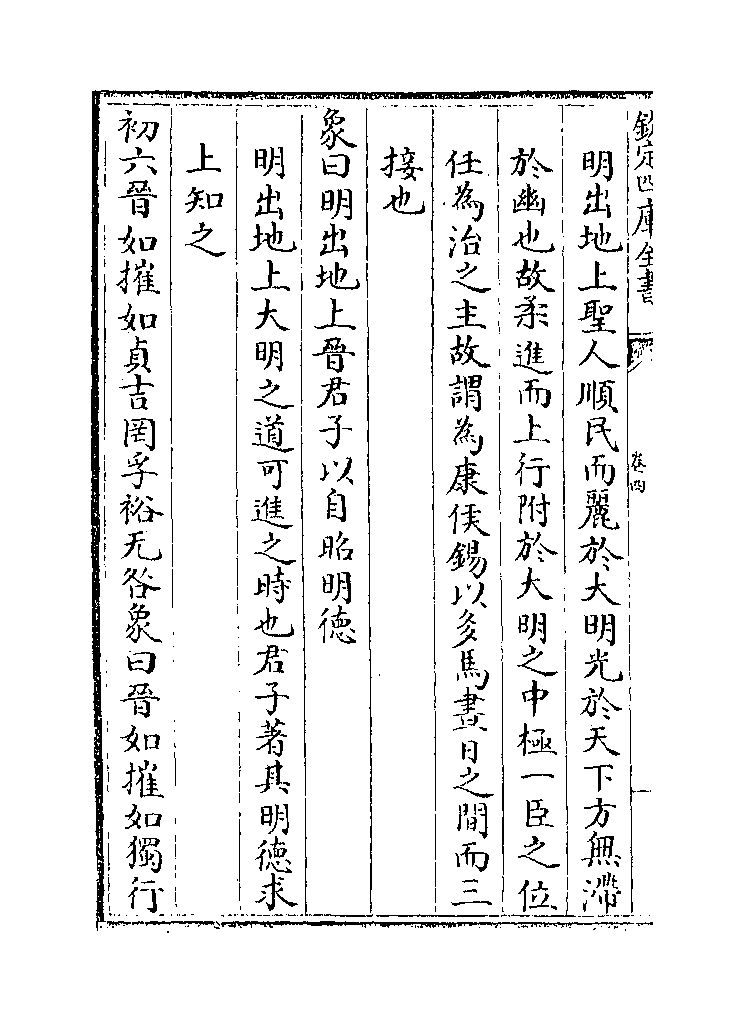 欽定四庫全書
卷四
明出地上聖人順民而麗於大明光於天下方無滯
於幽也故柔進而上行附於大明之中極一臣之位
任為治之主故謂為康侯錫以多馬晝日之間而三
接也
象曰明出地上晉君子以自昭明徳
明出地上大明之道可進之時也君子著其明徳求
上知之
初六晉如摧如貞吉罔孚裕无咎象曰晉如摧如獨行